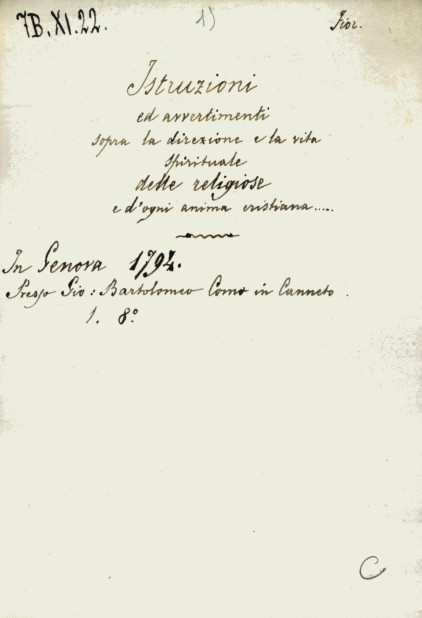 7B.XI.22.
1)
Fior.
Istruzioni
ed avvertimenti
sopra la direzione e la vita
spirituale
delle religiose
e d'ogni anima cristiana.....
In Genova 1794.
Presso Gio: Bartolomeo Como in Canneto.
1. 8°
C